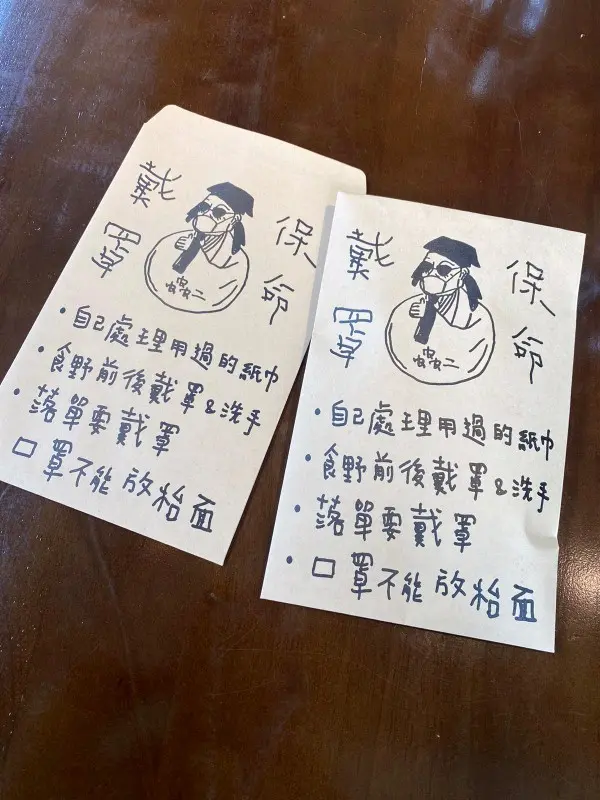 戴罩
保命
・自己處理用過的紙巾
・食野前後戴罩&洗手
・落單要戴罩
口罩不能放枱面
戴罩
保命
・自己處理用過的紙巾
・食野前後戴罩&洗手
・落單要戴罩
・口罩不能放枱面